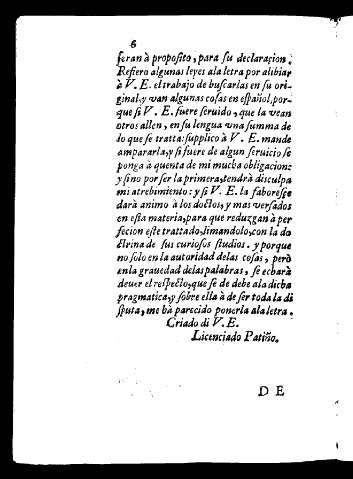 6
ſeran à propoſito, para ſu declaracion.
Refiero algunas leyes ala letra por alibiar
à V. E. el trabajo de buſcarlas en ſu ori-
ginal,y van algunas coſas en eſpañol,por-
que ſi V. E. fuere ſeruido, que la vean
otros allen, en ſu lengua vna ſumma de
lo que ſe tratta:ſupplico à V. E. mande
ampararla,y ſi fuere de algun ſeruicio ſe
ponga à quenta de mi mucha obligacion:
y ſino por ſer la primera,tendrà diſculpa
mi atrebimiento: y ſi V. E. la faboreſçe
darà animo à los doctos,y mas verſados
en eſta materia,para que reduzgan à per
fecion eſte trattado,limandolo,con la do
ctrina de ſus curioſos ſtudios. y porque
no ſolo en la autoridad delas coſas, però
en la grauedad delas palabras, ſe echarà
de uer el reſpecto,que ſe de debe ala dicha
pragmatica,y ſobre ella à de ſer toda la di
ſputa,me hà parecido ponerla ala letra.
Criado di V. E.
Licenciado Patiño.
D E